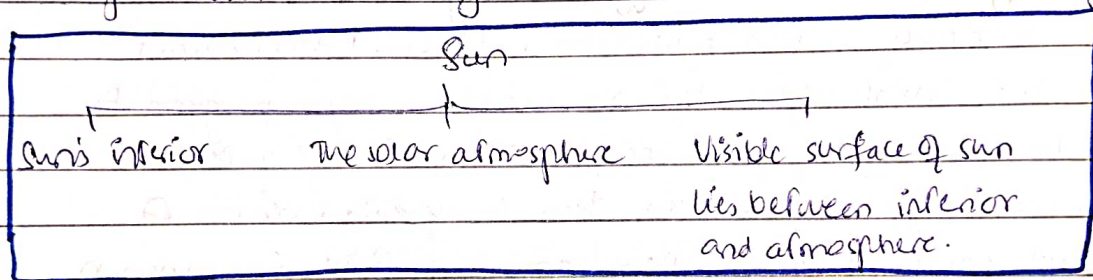 Sun
Sun's interior The solar atmosphere Visible surface of sun
lies between interior
and atmosphere.